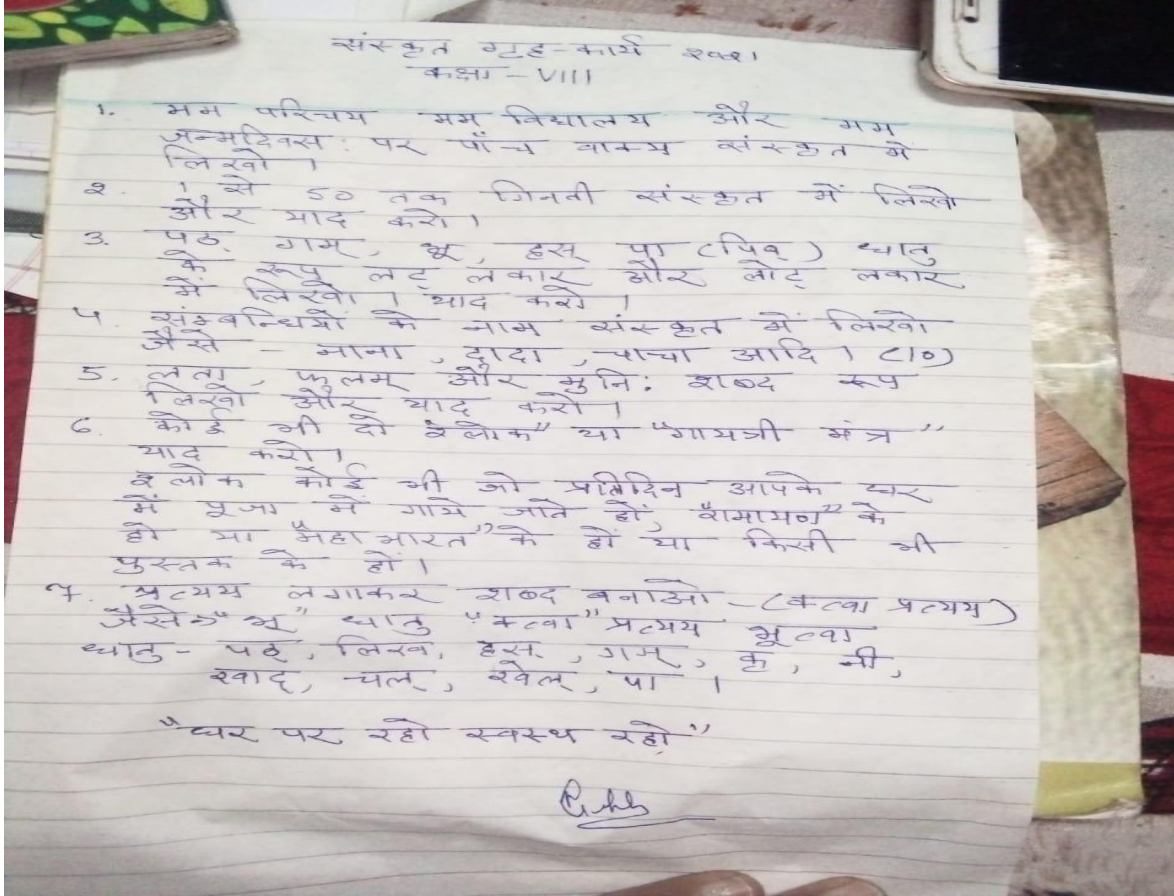 संस्कृत गृह-कार्य २०२१
कक्षा - VIII
1. मम परिचय मम विद्यालय और मम
जन्मदिवस: पर पाँच वाक्य संस्कृत में
लिखो ।
२. 1 से 50 तक गिनती संस्कृत में लिखो
और याद करो ।
3. पठ्, गम्, भू, हस् पा (पिब्) धातु
के रूप लट् लकार और लोट् लकार
में लिखो । याद करो ।
4. संम्बन्धियों के नाम संस्कृत में लिखो
जैसे - नाना, दादा, चाचा आदि । (10)
5. लता, फलम् और मुनि: शब्द रूप
लिखो और याद करो ।
6. कोई भी दो श्लोक" या "गायत्री मंत्र"
याद करो ।
श्लोक कोई भी जो प्रतिदिन आपके घर
में पूजा में गाये जाते हों, "रामायण" के
हो या "महाभारत" के हों या किसी भी
पुस्तक के हों ।
7. प्रत्यय लगाकर शब्द बनाओ - (क्त्वा प्रत्यय)
जैसे → "भू" धातु "क्त्वा" प्रत्यय भूत्वा
धातु - पठ्, लिख्, हस्, गम्, कृ, नी,
खाद्, चल्, खेल्, पा ।
"घर पर रहो स्वस्थ रहो"